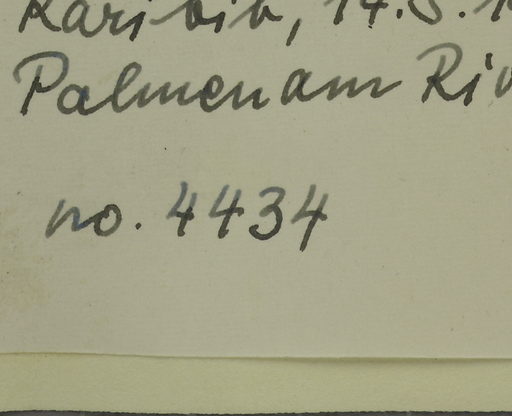 Karibib, 14.5.
Palmen am Riv
no. 4434